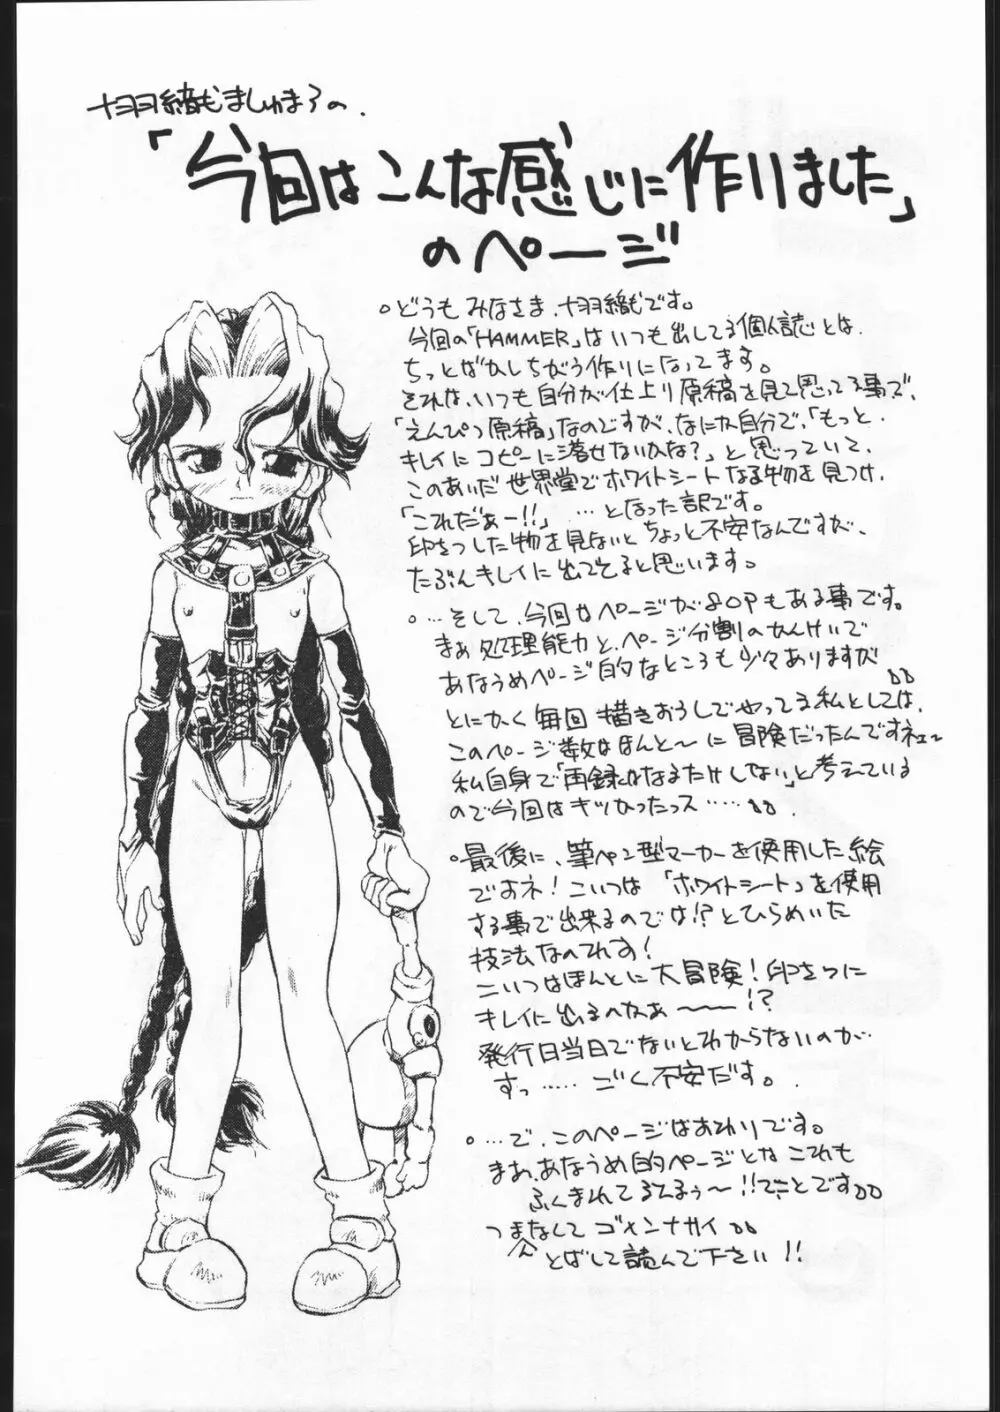 「今回はこんな感じに作りました」
のページ
どうもみなさま、十羽織ですです。
今回の「HAMMER」はいつも出してる個人誌とは
ちっとばかしちがう作りになってます。
それは、いつも自分が仕上り原稿を見て思ってる事で、
「えんぴつ原稿」なのですが、なにか自分で、「もっと
キレイにコピーに落せないかな?」と思っていて、
このあいだ世界堂でホワイトシートなる物を見つけ
「これだぁー!!」…となった訳です。
印をつした物を見ないとちょっと不安なんですが、
たぶんキレイに出てると思います。
…そして、今回はページが80Pもある事です。
まぁ処理能力と、ページ分割のかんけいで
あなうめページ的なところも少々ありますが
とにかく毎回描きおろしでやってる私としては、
このページ数はほんと〜に冒険だったんですネェ〜
私自身で「再録はなるたけしない」と考えている
ので今回はキツかったっス……
最後に、筆ペン型マーカーを使用した絵
ですネ!こいつは「ホワイトシート」を使用
する事で出来るのでは!?とひらめいた
技法なのです!
こいつはほんとに大冒険!印をつに
キレイに出るのかなぁ〜〜!?
発行日当日でないとわからないのが
すっ……ごく不安だす。
…で、このページはおわりです。
まぁ、あなうめ的ページとかこれも
ふくまれてるんるぅ〜!!てことです
つまんなくてゴメンナサイ
とばして読んで下さい!!